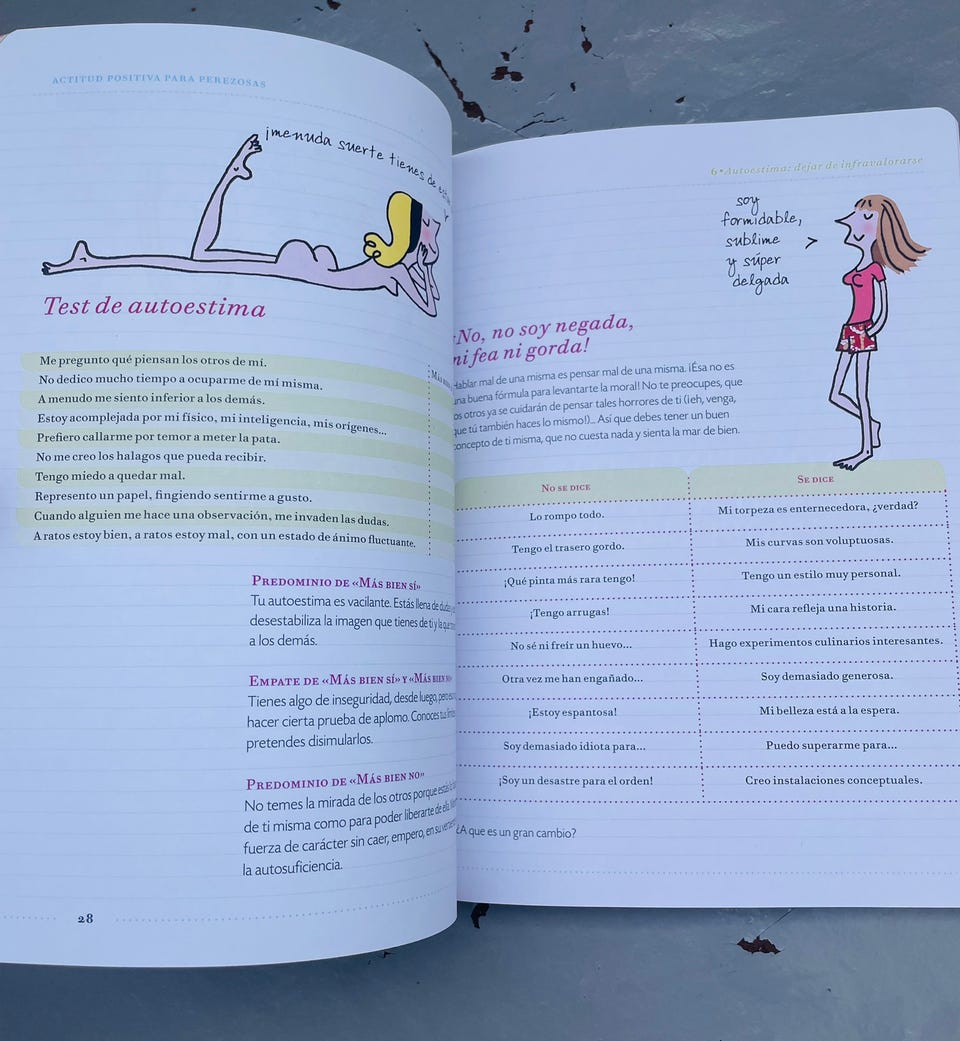 ACTITUD POSITIVA PARA PEREZOSAS
¡menuda suerte tienes de
Test de autoestima
Me pregunto qué piensan los otros de mí.
No dedico mucho tiempo a ocuparme de mí misma.
A menudo me siento inferior a los demás.
Estoy acomplejada por mi físico, mi inteligencia, mis orígenes...
Prefiero callarme por temor a meter la pata.
No me creo los halagos que pueda recibir.
Tengo miedo a quedar mal.
Represento un papel, fingiendo sentirme a gusto.
Cuando alguien me hace una observación, me invaden las dudas.
A ratos estoy bien, a ratos estoy mal, con un estado de ánimo fluctuante.
PREDOMINIO DE «MÁS BIEN SÍ»
Tu autoestima es vacilante. Estás llena de
desestabiliza la imagen que tienes de ti y la que
a los demás.
EMPATE DE «MÁS BIEN SÍ» Y «MÁS BIEN NO»
Tienes algo de inseguridad, desde luego,
hacer cierta prueba de aplomo. Conoces tus
pretendes disimularlos.
PREDOMINIO DE «MÁS BIEN NO»
No temes la mirada de los otros porque estás
de ti misma como para poder liberarte de ella.
fuerza de carácter sin caer, empero, en su
la autosuficiencia.
28
6 • Autoestima: dejar de infravalorarse
soy
formidable,
sublime
y súper
delgada
No, no soy negada,
ni fea ni gorda!
Hablar mal de una misma es pensar mal de una misma. ¡Esa no es
una buena fórmula para levantarte la moral! No te preocupes, que
os otros ya se cuidarán de pensar tales horrores de ti (¡eh, venga,
que tú también haces lo mismo!)... Así que debes tener un buen
concepto de ti misma, que no cuesta nada y sienta la mar de bien.
NO SE DICE SE DICE
Lo rompo todo. Mi torpeza es enternecedora, ¿verdad?
Tengo el trasero gordo. Mis curvas son voluptuosas.
¡Qué pinta más rara tengo! Tengo un estilo muy personal.
¡Tengo arrugas! Mi cara refleja una historia.
No sé ni freír un huevo... Hago experimentos culinarios interesantes.
Otra vez me han engañado... Soy demasiado generosa.
¡Estoy espantosa! Mi belleza está a la espera.
Soy demasiado idiota para... Puedo superarme para...
¡Soy un desastre para el orden! Creo instalaciones conceptuales.
¿A que es un gran cambio?